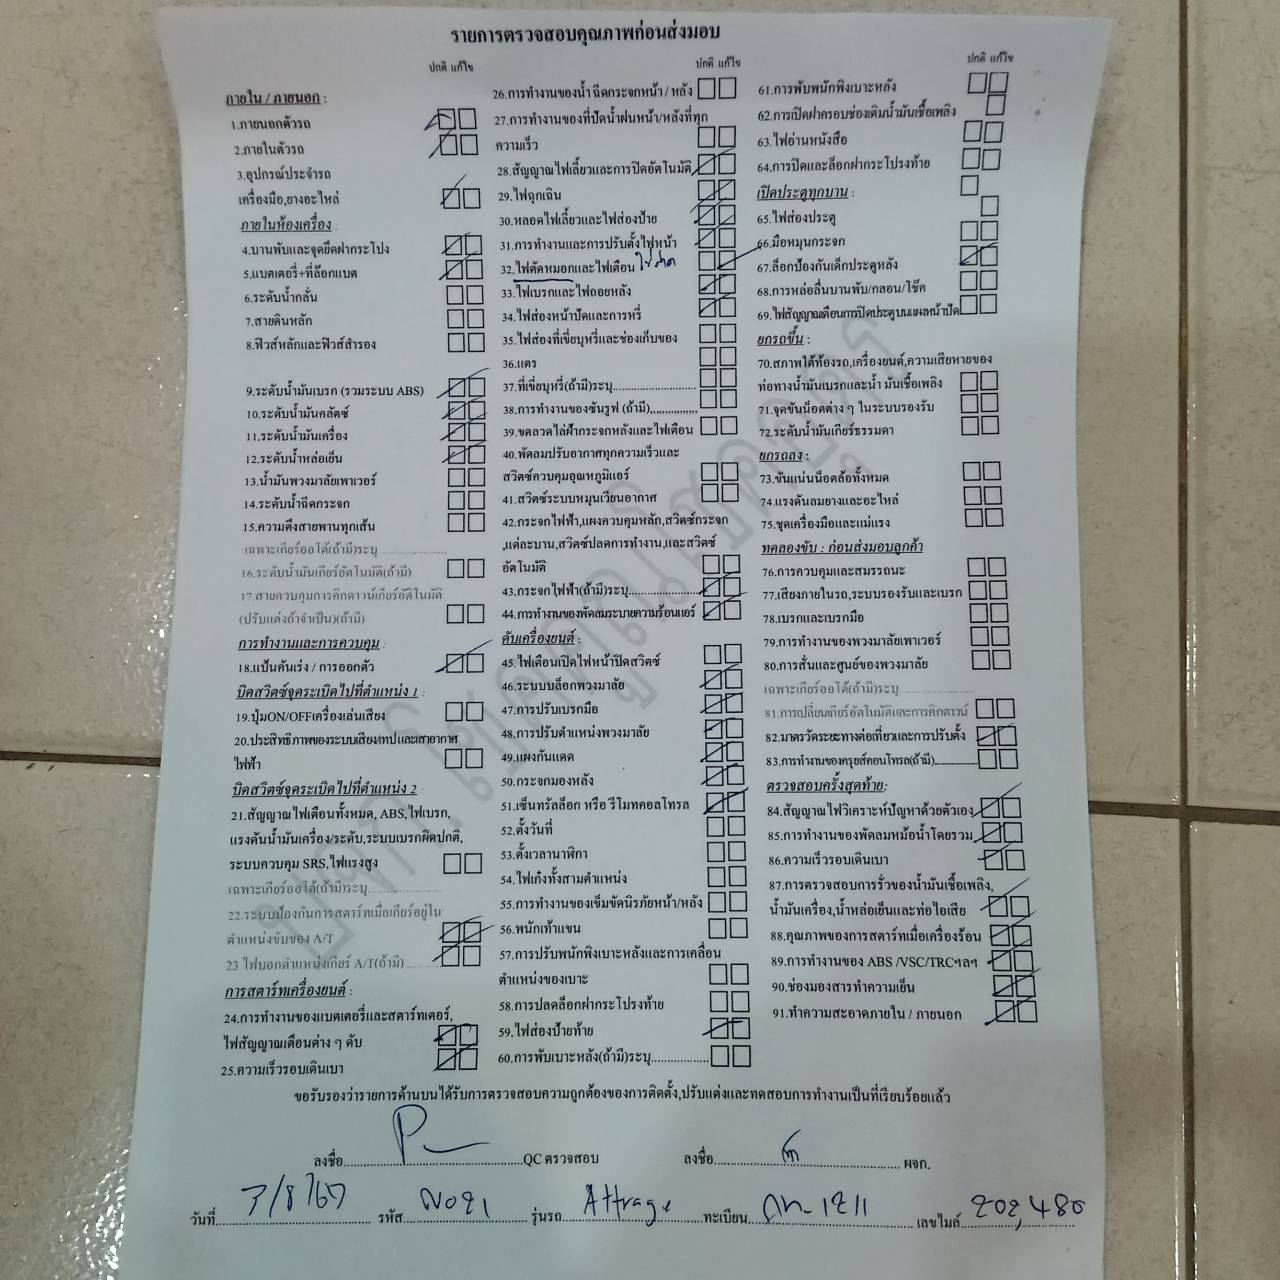 รายการตรวจสอบคุณภาพก่อนส่งมอบ
ปกติ แก้ไข
ภายใน / ภายนอก :
1.ภายนอกตัวรถ
2.ภายในตัวรถ
3.อุปกรณ์ประจำรถ
เครื่องมือ,ยางอะไหล่
ภายในห้องเครื่อง :
4.บานพับและจุดยึดฝากระโปง
5.แบตเตอรี่+ที่ล๊อกแบต
6.ระดับน้ำกลั่น
7.สายดินหลัก
8.ฟิวส์หลักและฟิวส์สำรอง
9.ระดับน้ำมันเบรก (รวมระบบ ABS)
10.ระดับน้ำมันคลัตซ์
11.ระดับน้ำมันเครื่อง
12.ระดับน้ำหล่อเย็น
13.น้ำมันพวงมาลัยเพาเวอร์
14.ระดับน้ำฉีดกระจก
15.ความตึงสายพานทุกเส้น
เฉพาะเกียร์ออโต้(ถ้ามี)ระบุ
16.ระดับน้ำมันเกียร์อัตโนมัติ(ถ้ามี)
17.สายควบคุมการคิกดาวน์เกียร์อัตโนมัติ
(ปรับแต่งถ้าจำเป็น)(ถ้ามี)
การทำงานและการควบคุม :
18.แป้นคันเร่ง / การออกตัว
บิดสวิตซ์จุดระเบิดไปที่ตำแหน่ง 1 :
19.ปุ่มON/OFFเครื่องเล่นเสียง
20.ประสิทธิภาพของระบบเสียง/เทปและเสาอากาศ
ไฟฟ้า
บิดสวิตซ์จุดระเบิดไปที่ตำแหน่ง 2 :
21.สัญญาณไฟเตือนทั้งหมด, ABS,ไฟเบรก,
แรงดันน้ำมันเครื่อง/ระดับ,ระบบเบรกผิดปกติ,
ระบบควบคุม SRS,ไฟแรงสูง
เฉพาะเกียร์ออโต้(ถ้ามี)ระบุ
22.ระบบป้องกันการสตาร์ทเมื่อเกียร์อยู่ใน
ตำแหน่งขับของ A/T
23 ไฟบอกตำแหน่งเกียร์ A/T(ถ้ามี)
การสตาร์ทเครื่องยนต์ :
24.การทำงานของแบตเตอรี่และสตาร์ทเตอร์,
ไฟสัญญาณเตือนต่าง ๆ ดับ
25.ความเร็วรอบเดินเบา
ปกติ แก้ไข
26.การทำงานของน้ำ ฉีดกระจกหน้า / หลัง
27.การทำงานของที่ปัดน้ำฝนหน้า/หลังที่ทุก
ความเร็ว
28.สัญญาณไฟเลี้ยวและการปิดอัตโนมัติ
29.ไฟฉุกเฉิน
30.หลอดไฟเลี้ยวและไฟส่องป้าย
31.การทำงานและการปรับตั้งไฟหน้า
32.ไฟตัดหมอกและไฟเตือน
33.ไฟเบรกและไฟถอยหลัง
34.ไฟส่องหน้าปัดและการหรี่
35.ไฟส่องที่เขี่ยบุหรี่และช่องเก็บของ
36.แตร
37.ที่เขี่ยบุหรี่(ถ้ามี)ระบุ
38.การทำงานของซันรูฟ (ถ้ามี)
39.ขดลวดไล่ฝ้ากระจกหลังและไฟเตือน
40.พัดลมปรับอากาศทุกความเร็วและ
สวิตซ์ควบคุมอุณหภูมิแอร์
41.สวิตซ์ระบบหมุนเวียนอากาศ
42.กระจกไฟฟ้า,แผงควบคุมหลัก,สวิตซ์กระจก
,แต่ละบาน,สวิตซ์ปลดการทำงาน,และสวิตซ์
อัตโนมัติ
43.กระจกไฟฟ้า(ถ้ามี)ระบุ
44.การทำงานของพัดลมระบายความร้อนแอร์
ดับเครื่องยนต์ :
45.ไฟเตือนเปิดไฟหน้าปิดสวิตซ์
46.ระบบบล็อกพวงมาลัย
47.การปรับเบรกมือ
48.การปรับตำแหน่งพวงมาลัย
49.แผงกันแดด
50.กระจกมองหลัง
51.เซ็นทรัลล็อก หรือ รีโมทคอลโทรล
52.ตั้งวันที่
53.ตั้งเวลานาฬิกา
54.ไฟเก๋งทั้งสามตำแหน่ง
55.การทำงานของเข็มขัดนิรภัยหน้า/หลัง
56.พนักเท้าแขน
57.การปรับพนักพิงเบาะหลังและการเคลื่อน
ตำแหน่งของเบาะ
58.การปลดล็อกฝากระโปรงท้าย
59.ไฟส่องป้ายท้าย
60.การพับเบาะหลัง(ถ้ามี)ระบุ
ปกติ แก้ไข
61.การพับพนักพิงเบาะหลัง
62.การเปิดฝาครอบช่องเติมน้ำมันเชื้อเพลิง
63.ไฟอ่านหนังสือ
64.การปิดและล็อกฝากระโปรงท้าย
เปิดประตูทุกบาน :
65.ไฟส่องประตู
66.มือหมุนกระจก
67.ล็อกป้องกันเด็กประตูหลัง
68.การหล่อลื่นบานพับ/กลอน/โช๊ค
69.ไฟสัญญาณเตือนการปิดประตูบนแผงหน้าปัด
ยกรถขึ้น :
70.สภาพใต้ท้องรถ,เครื่องยนต์,ความเสียหายของ
ท่อทางน้ำมันเบรกและน้ำ มันเชื้อเพลิง
71.จุดขันน็อตต่าง ๆ ในระบบรองรับ
72.ระดับน้ำมันเกียร์ธรรมดา
ยกรถลง :
73.ขันแน่นน็อตล้อทั้งหมด
74.แรงดันลมยางและอะไหล่
75.ชุดเครื่องมือและแม่แรง
ทดลองขับ : ก่อนส่งมอบลูกค้า
76.การควบคุมและสมรรถนะ
77.เสียงภายในรถ,ระบบรองรับและเบรก
78.เบรกและเบรกมือ
79.การทำงานของพวงมาลัยเพาเวอร์
80.การสั่นและศูนย์ของพวงมาลัย
เฉพาะเกียร์ออโต้(ถ้ามี)ระบุ
81.การเปลี่ยนเกียร์อัตโนมัติและการคิกดาวน์
82.มาตรวัดระยะทางต่อเที่ยวและการปรับตั้ง
83.การทำงานของครุยส์คอนโทรล(ถ้ามี)
ตรวจสอบครั้งสุดท้าย:
84.สัญญาณไฟวิเคราะห์ปัญหาด้วยตัวเอง
85.การทำงานของพัดลมหม้อน้ำโดยรวม
86.ความเร็วรอบเดินเบา
87.การตรวจสอบการรั่วของน้ำมันเชื้อเพลิง,
น้ำมันเครื่อง,น้ำหล่อเย็นและท่อไอเสีย
88.คุณภาพของการสตาร์ทเมื่อเครื่องร้อน
89.การทำงานของ ABS /VSC/TRCฯลฯ
90.ช่องมองสารทำความเย็น
91.ทำความสะอาดภายใน / ภายนอก
ขอรับรองว่ารายการด้านบนได้รับการตรวจสอบความถูกต้องของการติดตั้ง,ปรับแต่งและทดสอบการทำงานเป็นที่เรียบร้อยแล้ว
ลงชื่อ QC ตรวจสอบ ลงชื่อ ผจก.
วันที่ 7/8/67 รหัส ผ021 รุ่นรถ Attrage ทะเบียน กท-1211 เลขไมล์ 202,480